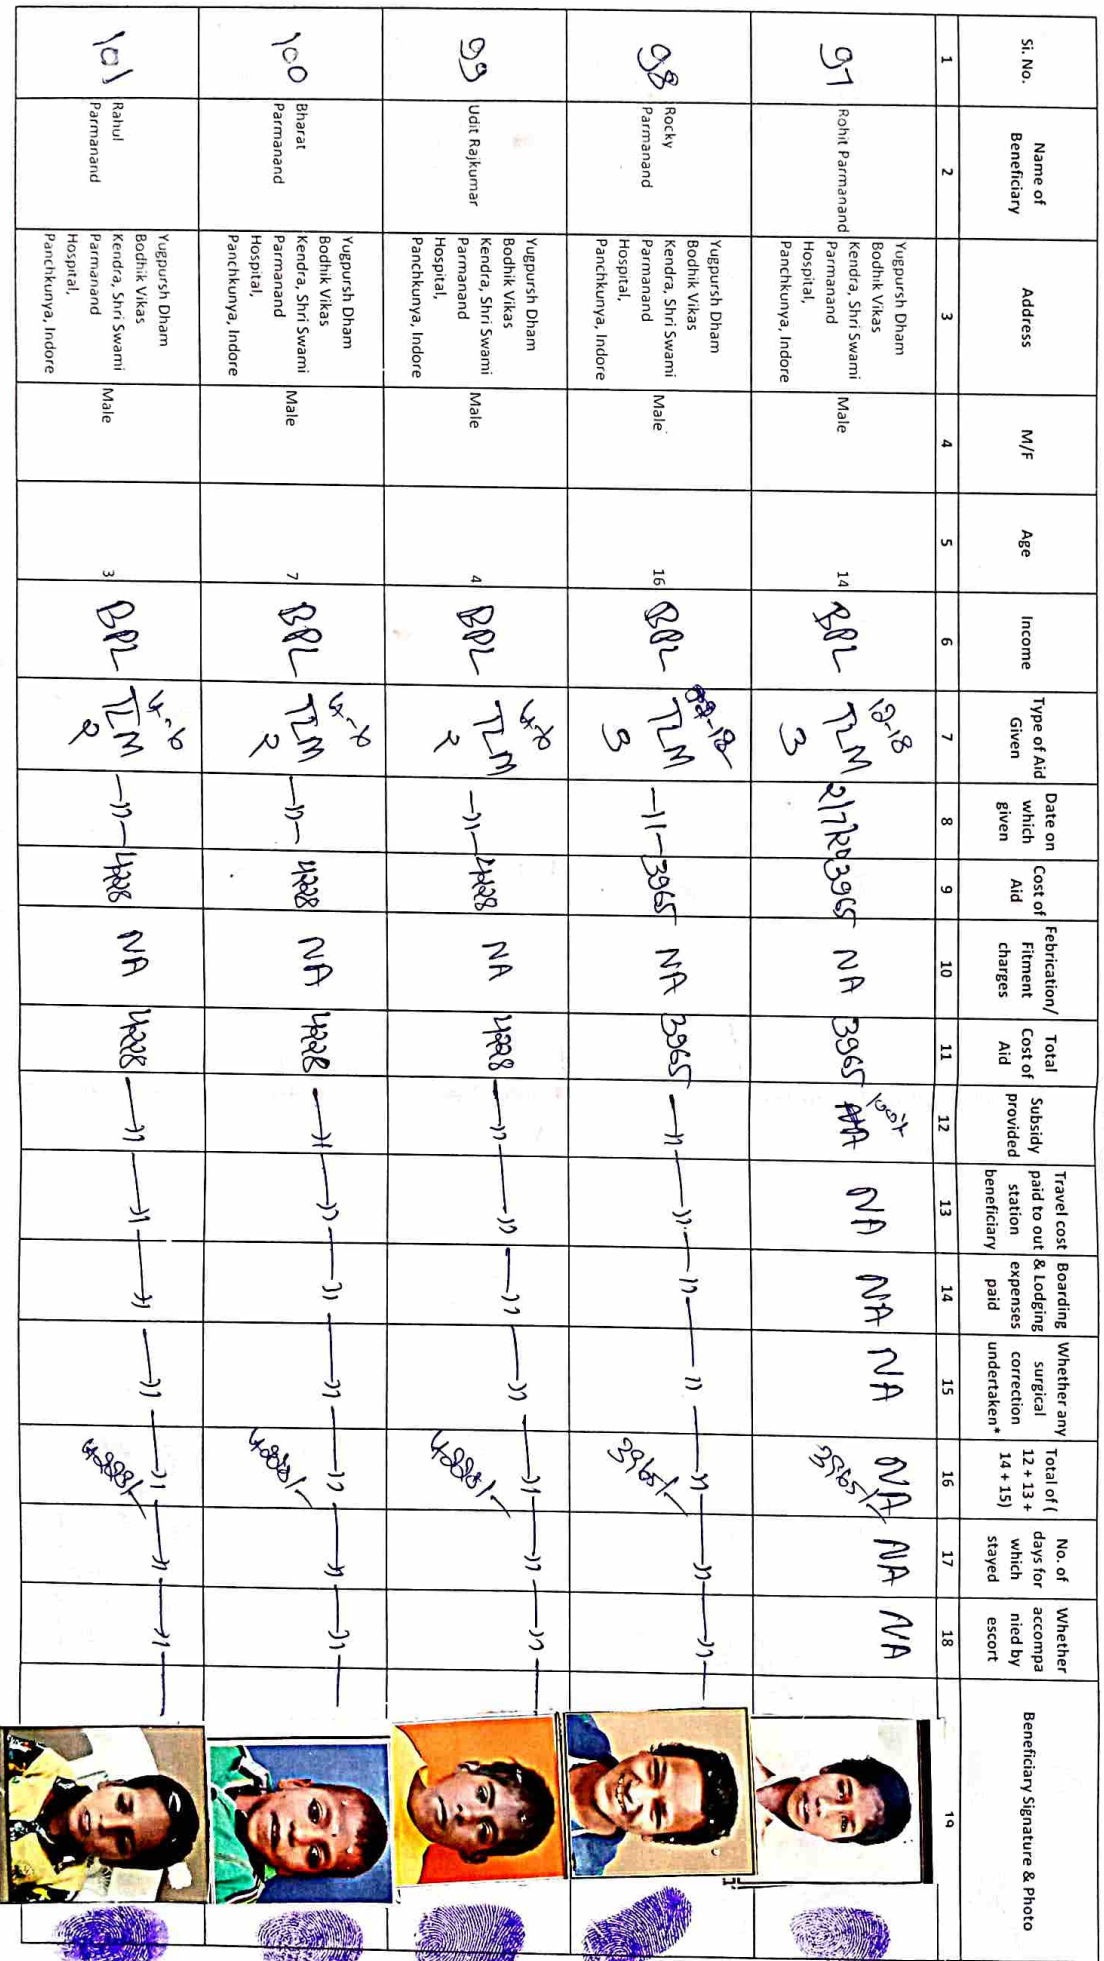 Si. No.
Name of
Beneficiary
Address
M/F
Age
Income
Type of Aid
Given
Date on
which
given
Cost of
Aid
Febrication/
Fitment
charges
Total
Cost of
Aid
Subsidy
provided
Travel cost
paid to out
station
beneficiary
Boarding
& Lodging
expenses
paid
Whether any
surgical
correction
undertaken*
Total of (
12 + 13 +
14 + 15)
No. of
days for
which
stayed
Whether
accompa
nied by
escort
Beneficiary Signature & Photo
1
2
3
4
5
6
7
8
9
10
11
12
13
14
15
16
17
18
19
97
Rohit Parmanand
Yugpursh Dham
Bodhik Vikas
Kendra, Shri Swami
Parmanand
Hospital,
Panchkunya, Indore
Male
14
BPL
12-18
TLM
3
3965
NA
3965
100%
NA
NA
NA
NA
3965/-
NA
NA
98
Rocky
Parmanand
Yugpursh Dham
Bodhik Vikas
Kendra, Shri Swami
Parmanand
Hospital,
Panchkunya, Indore
Male
16
BPL
TLM
3
-11-
3965
NA
3965
3965/-
99
Udit Rajkumar
Yugpursh Dham
Bodhik Vikas
Kendra, Shri Swami
Parmanand
Hospital,
Panchkunya, Indore
Male
4
BPL
TLM
2
-11-
4228
NA
4228
100
Bharat
Parmanand
Yugpursh Dham
Bodhik Vikas
Kendra, Shri Swami
Parmanand
Hospital,
Panchkunya, Indore
Male
7
BPL
TLM
2
-11-
4228
NA
4228
101
Rahul
Parmanand
Yugpursh Dham
Bodhik Vikas
Kendra, Shri Swami
Parmanand
Hospital,
Panchkunya, Indore
Male
3
BPL
TLM
2
-11-
4228
NA
4228